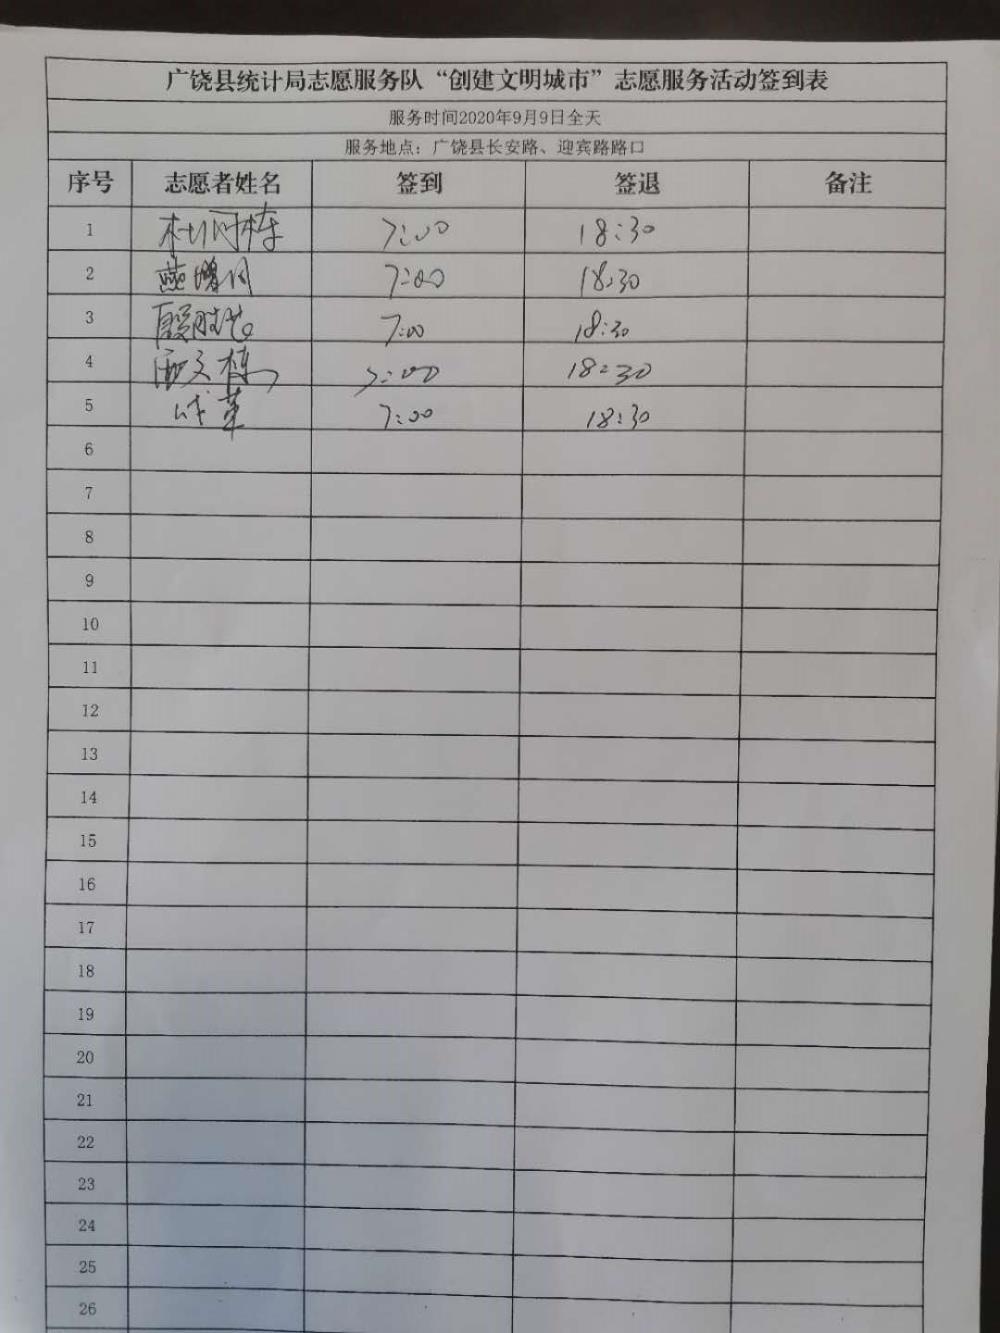 广饶县统计局志愿服务队“创建文明城市”志愿服务活动签到表
服务时间2020年9月9日全天
服务地点：广饶县长安路、迎宾路路口
序号 志愿者姓名 签到 签退 备注
1 7:00 18:30
2 7:00 18:30
3 7:00 18:30
4 7:00 18:30
5 7:00 18:30
6
7
8
9
10
11
12
13
14
15
16
17
18
19
20
21
22
23
24
25
26